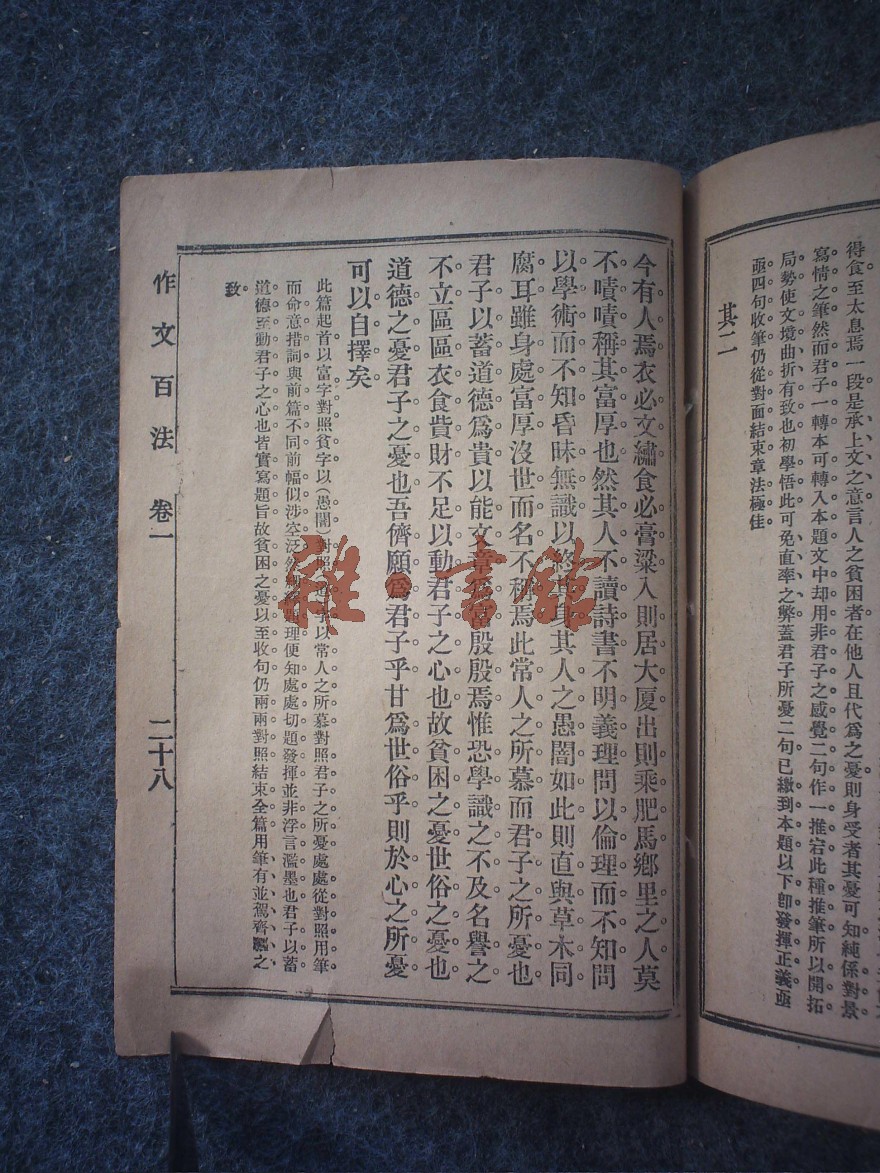 得食至太息焉一段是承上文之意言人之貧困者在他人且代爲之憂則身受者其憂可知純係對景
寫情之筆然而君子一轉本可轉入本題文中却用非君子之感覺二句作一推宕此種推筆所以開拓
局勢使文境曲折有致也初學悟此可免直率之弊蓋君子所憂二句已繳到本題以下卽發揮正義亟
亟四句收筆仍從對面結束章法極佳
其二
今有人焉衣必文繡食必膏粱入則居大厦出則乘肥馬鄉里之人莫
不嘖嘖稱其富厚也然其人不讀詩書不明義理問以倫理而不知問
以學術而不知昏昧無識以終其身其人之愚闇如此則直與草木同
腐耳雖身處富厚沒世而名不稱焉此常人之所慕而君子之所憂也
君子以蓄道德爲貴以能文章爲富殷殷焉惟恐學識之不及名譽之
不立區區衣食貲財不足以動君子之心也故貧困之憂世俗之憂也
道德之憂君子之憂也吾儕願爲君子乎甘爲世俗乎則於心之所憂
可以自擇矣
此篇起首以富字對照貧字以(愚闇)對照道字以常人之所慕對照君子之所憂處處從對照用筆
而命意措詞與前篇不同前幅似涉空泛然細繹理便知處處切題發揮並非浮言濫墨也君子以蓄
道德至動君子之心也皆實寫題旨故貧困之憂以至收句仍兩兩對照結束全篇用筆有並駕齊驅之
致
作文百法 卷一 二十八
雜·書館